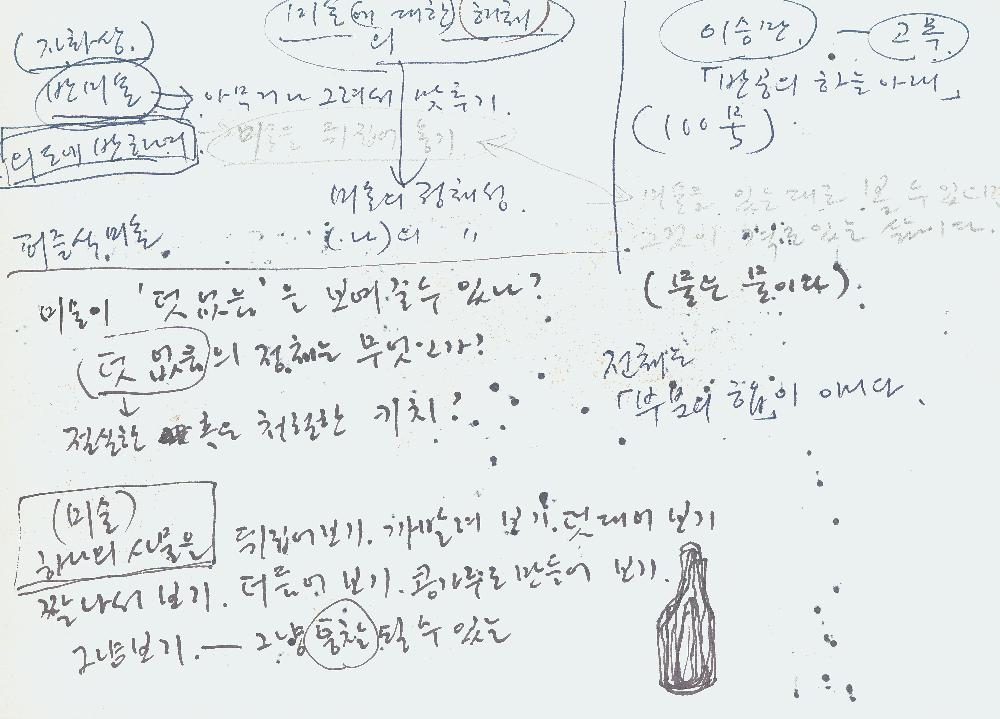 (자화상.)
반미술 → 아무거나 그려서 맞추기.
의도에 반하여
미술을 뒤집어 놓기
퍼즐식 미술.
미술에 대한 해체
의
미술의 정체성.
(나)의 〃
이승만. — 고복.
「반공의 하늘 아래」
(100号)
미술을 있는 대로 볼 수 있다면
그것이 있는 삶이다.
(물은 물이다).
미술이 '덧없음'을 보여줄 수 있나?
(덧없음)의 정체는 무엇인가?
↓
절실한 혹은 처절한 키치?
전체는
「부분의 합」이 아니다.
(미술)
하나의 사물을 뒤집어 보기. 까발려 보기. 덧대어 보기
잘라서 보기. 더듬어 보기. 콩가루로 만들어 보기.
그냥 보기. — 그냥 통찰될 수 있는